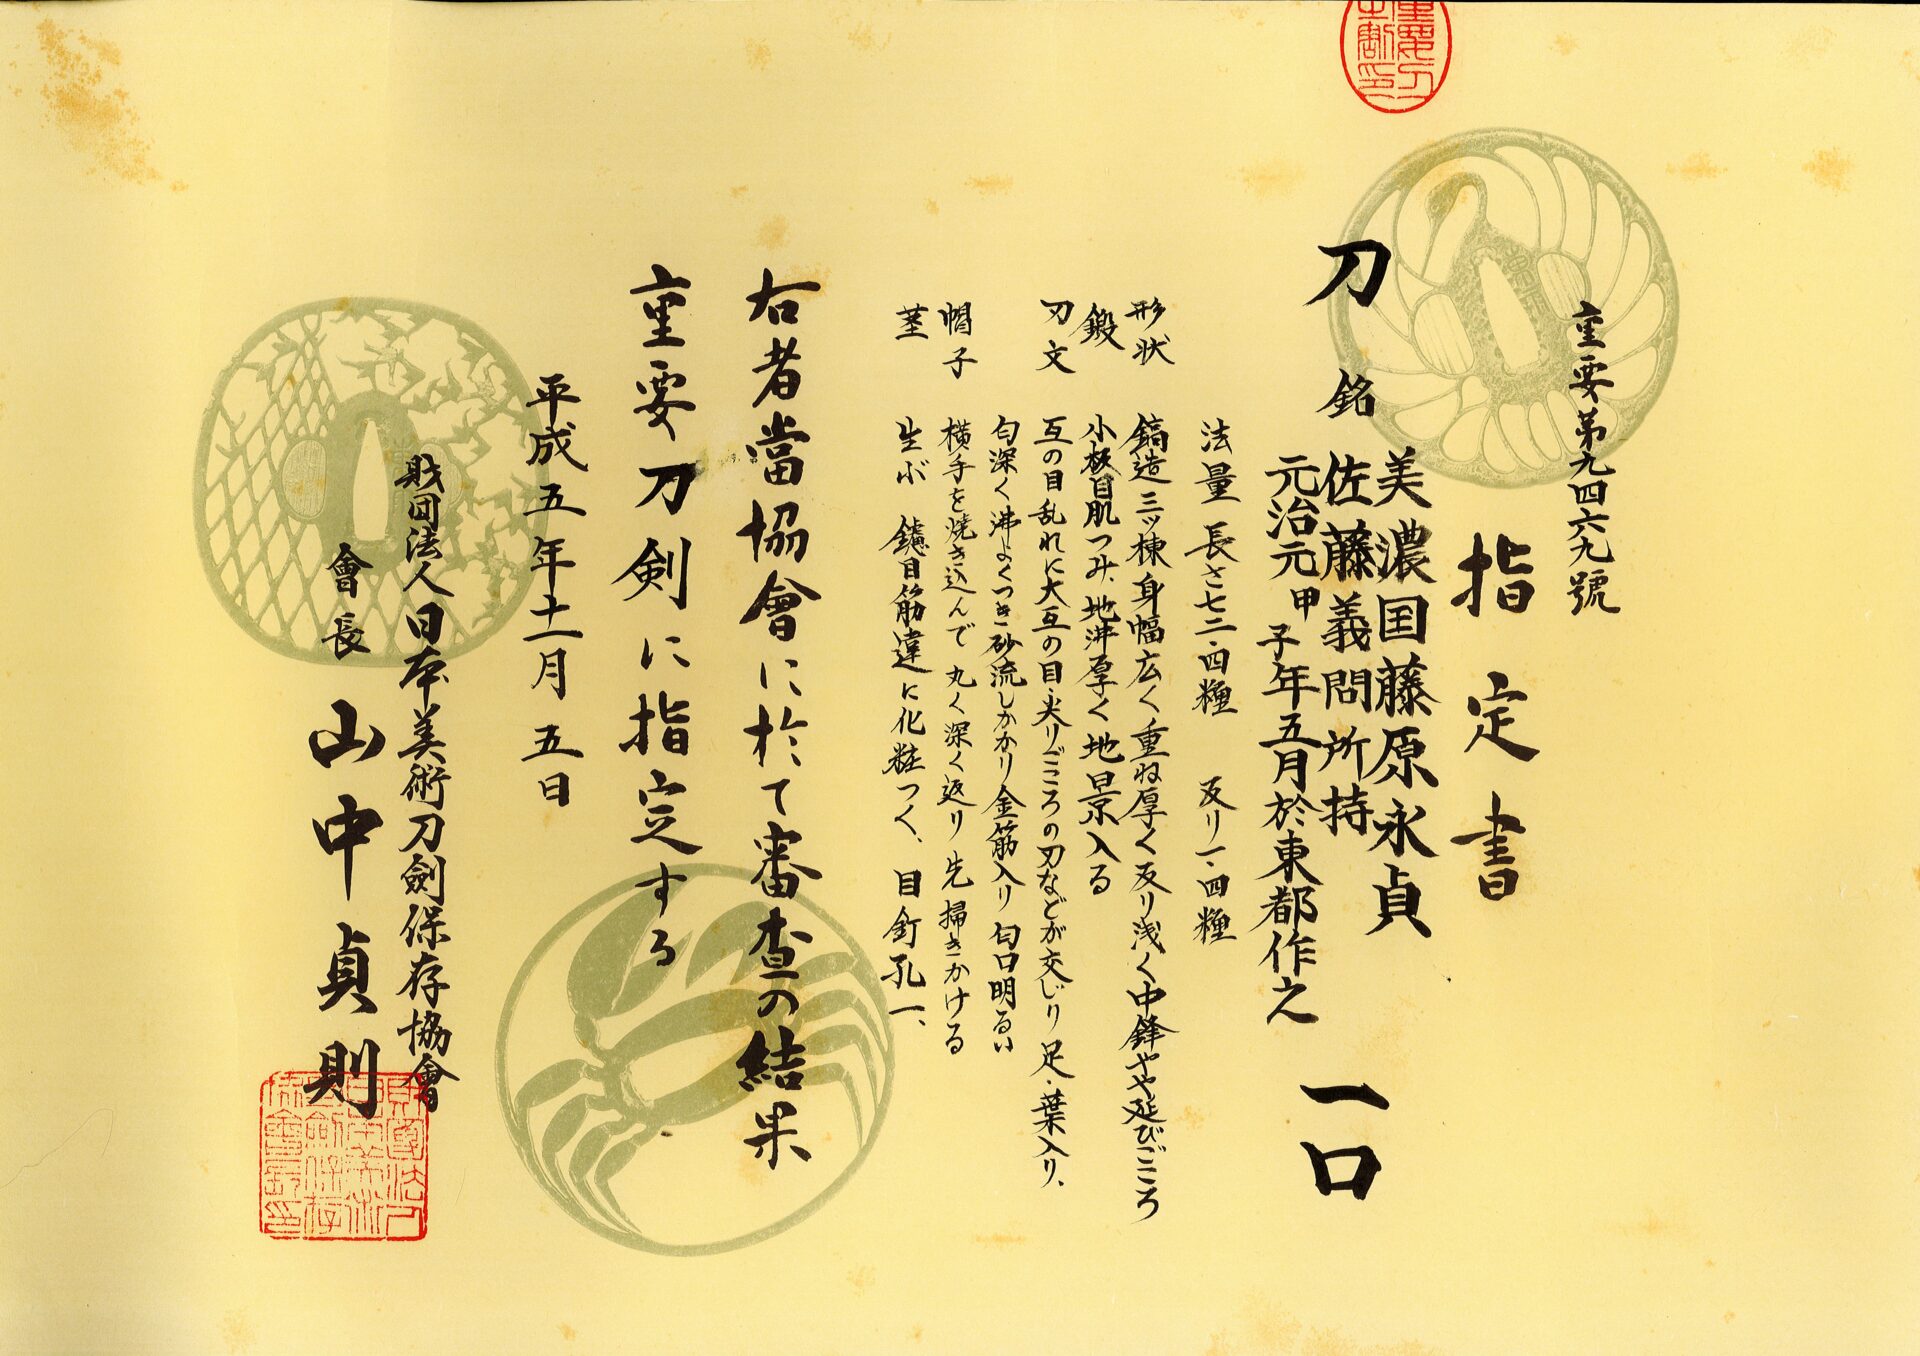 重要第九四六九號
指定書
刀 銘 美濃国藤原永貞 一口
佐藤義問所持
元治元甲子年五月於東都作之
法量 長さ七二・四糎 反り一・四糎
形状 鎬造 三ッ棟 身幅広く 重ね厚く 反り浅く 中鋒やや延びごころ
鍛 小板目肌つみ、地沸厚く 地景入る
刃文 互の目乱れに 大互の目・尖りごころの刃などが交じり 足・葉入り、
匂深く 沸よくつき 砂流しかかり 金筋入り 匂口明るい
帽子 横手を焼き込んで 丸く深く返り 先掃きかける
茎 生ぶ 鑢目筋違に化粧つく、目釘孔一、
右者當協會に於て審査の結果
重要刀剣に指定する
平成五年十一月五日
財団法人日本美術刀劍保存協會
會長 山中貞則